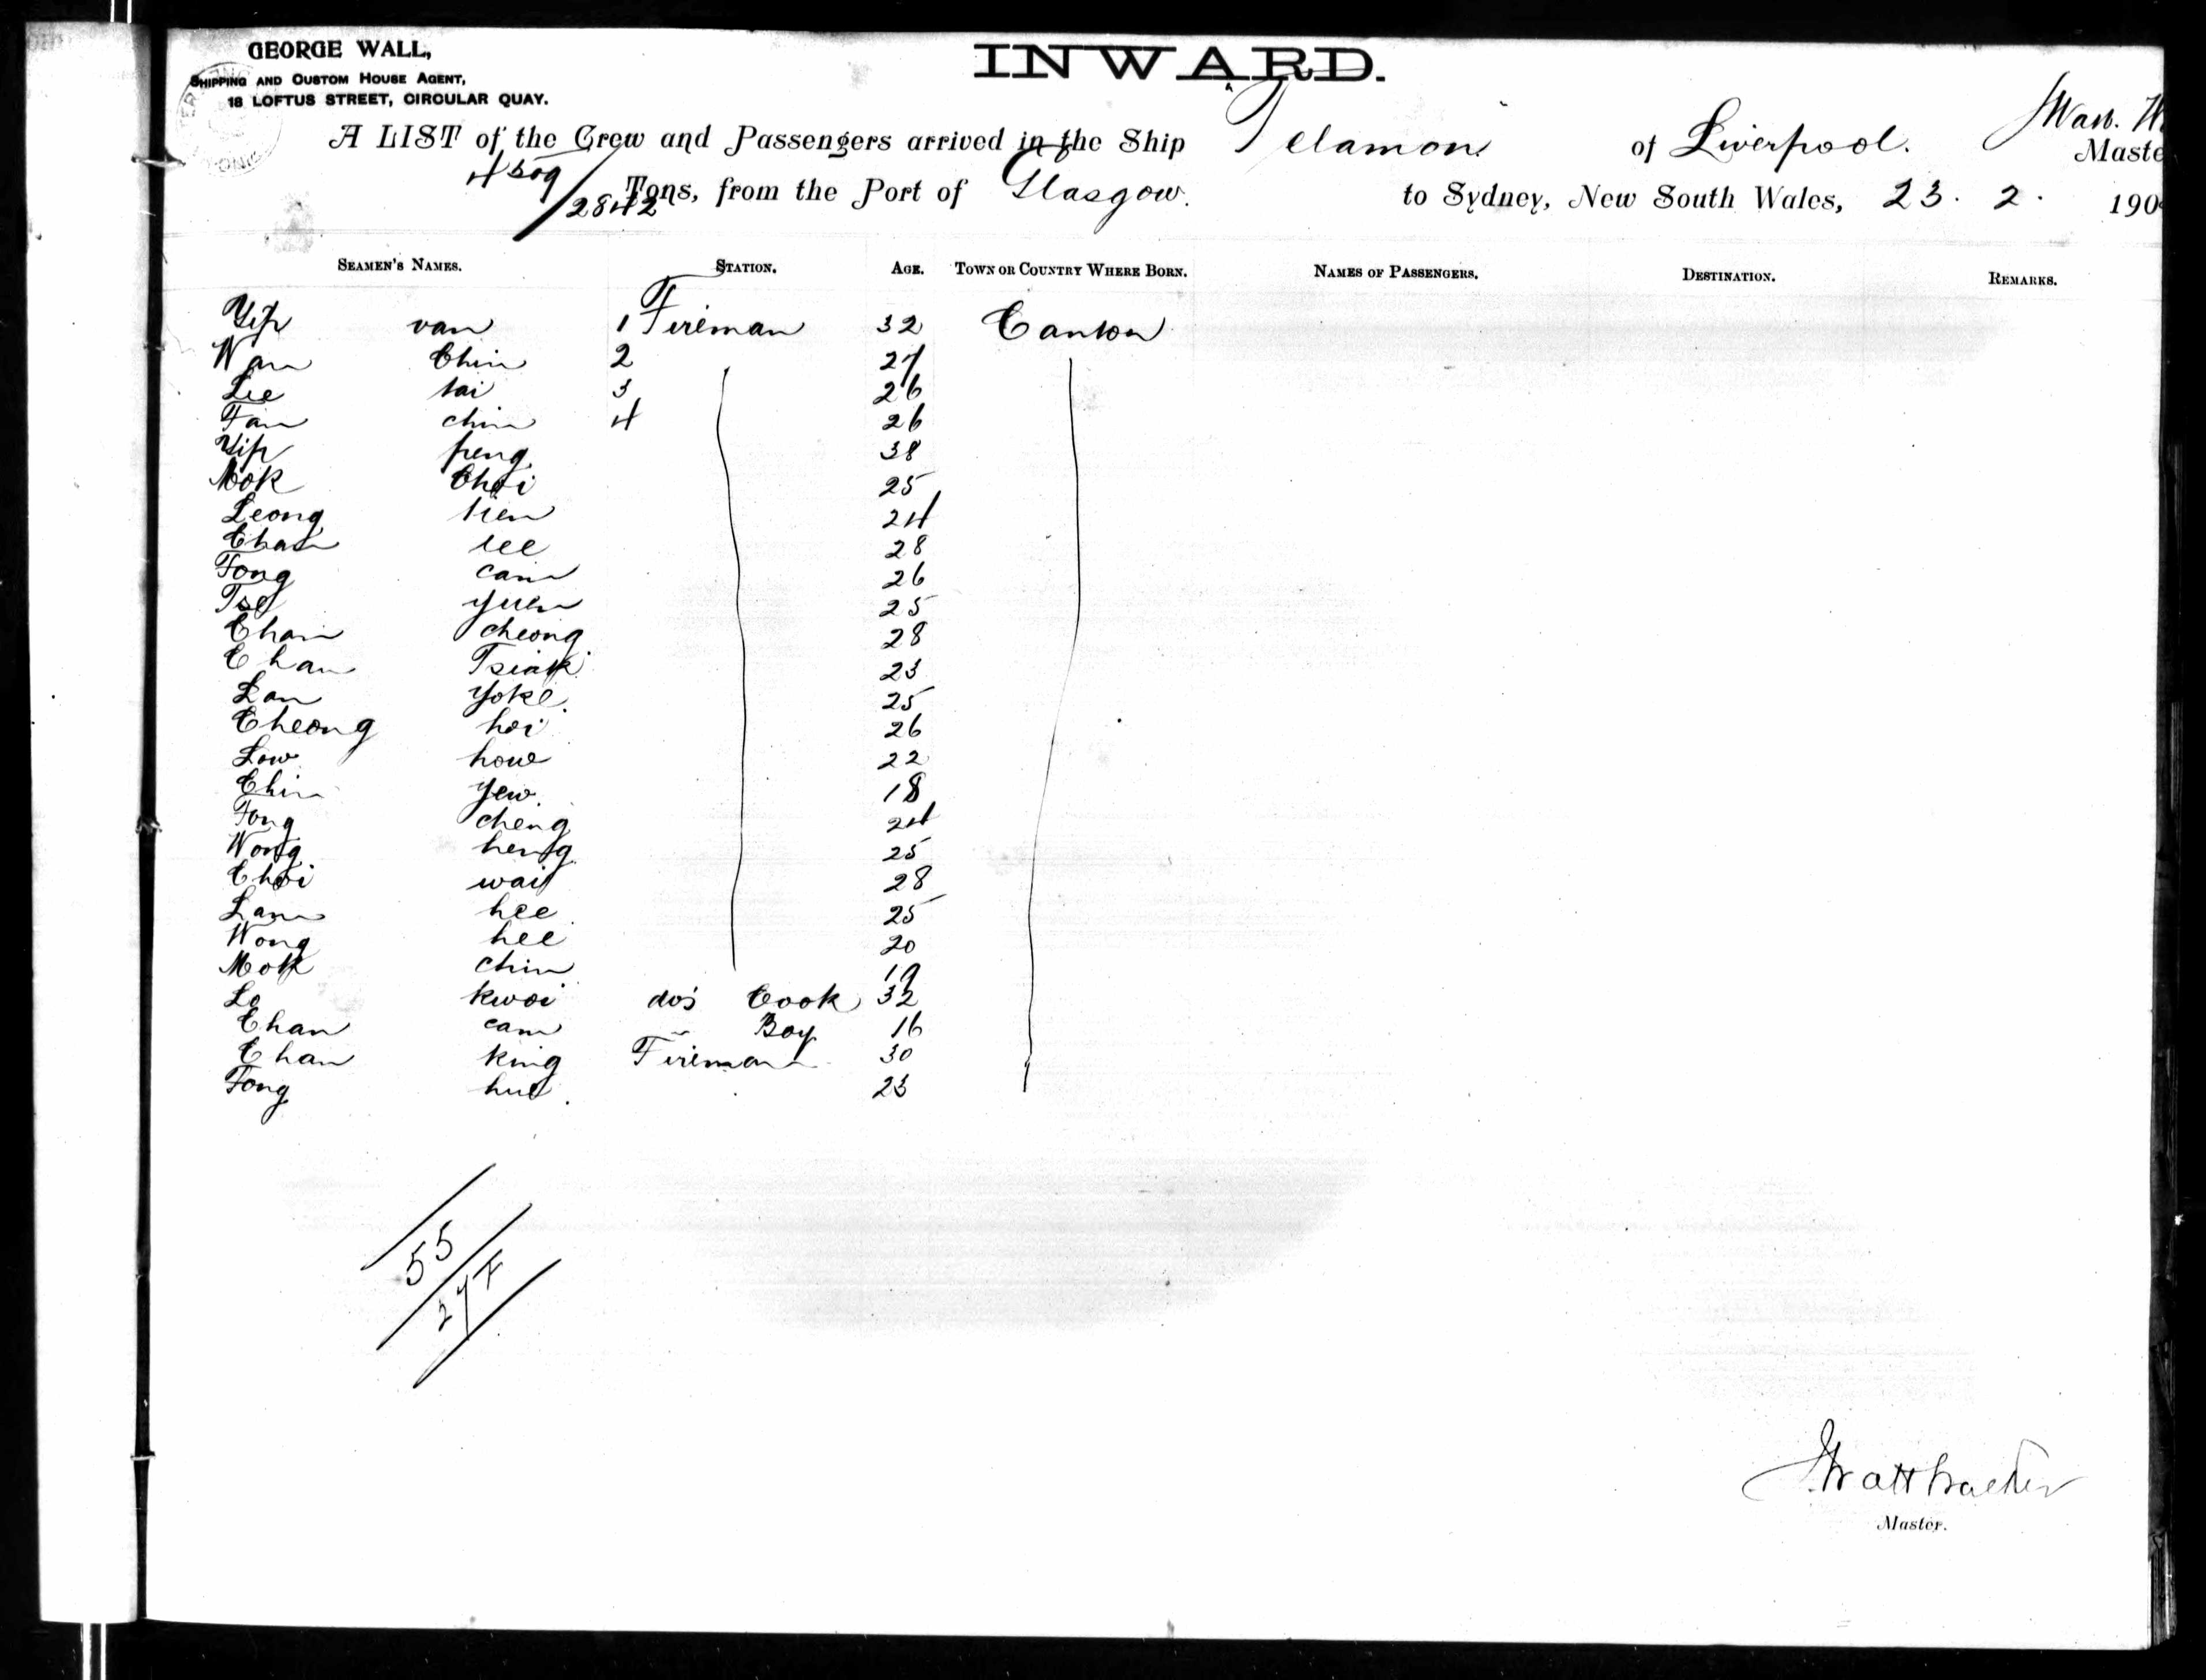 GEORGE WALL,
SHIPPING AND CUSTOM HOUSE AGENT,
18 LOFTUS STREET, CIRCULAR QUAY.
INWARD.
A LIST of the Crew and Passengers arrived in the Ship Telamon of Liverpool. Master
4509/2842 Tons, from the Port of Glasgow. to Sydney, New South Wales, 23. 2. 190
SEAMEN'S NAMES. STATION. AGE. TOWN OR COUNTRY WHERE BORN. NAMES OF PASSENGERS. DESTINATION. REMARKS.
Yip van 1 Fireman 32 Canton
Wan Chin 2 27
Lee tai 3 26
Fan chin 4 26
Yip peng 38
Mok Choi 25
Leong tien 24
Chan lee 28
Fong cam 26
Tse yuen 25
Chan cheong 28
Chan Tsiak 23
Lan Yoke 25
Cheong hoi 26
Low howe 22
Chin Yew 18
Fong cheng 24
Wong heng 25
Choi wai 28
Lam hee 25
Wong hee 20
Mok chin 19
Lo kwoi do's Cook 32
Chan cam " Boy 16
Chan king Fireman 30
Fong hue 23
55
27F
Master.